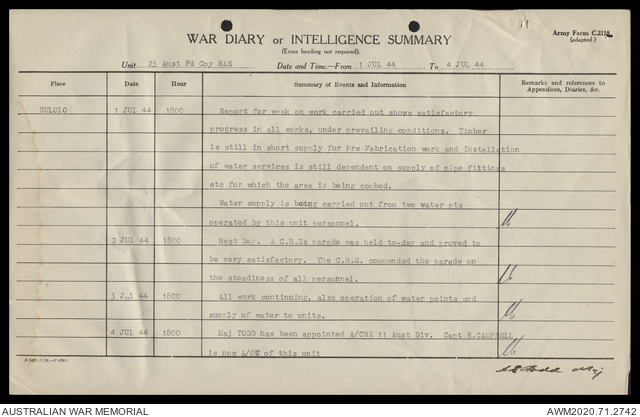 11
Army Form C.2118.
(adapted.)
WAR DIARY or INTELLIGENCE SUMMARY
(Erase heading not required).
Unit 23 Aust Fd Coy RAE Date and Time.—From 1 JUL 44 To 4 JUL 44
Place Date Hour Summary of Events and Information Remarks and references to Appendices, Diaries, &c.
BULOLO 1 JUL 44 1800 Report for week on work carried out shows satisfactory
progress in all works, under prevailing conditions. Timber
is still in short supply for Pre-Fabrication work and Installation
of water services is still dependant on supply of pipe fittings
etc for which the area is being combed.
Water supply is being carried out from two water pts
operated by this unit personnel.
2 JUL 44 1800 Rest Day. A C.R.Es parade was held to-day and proved to
be very satisfactory. The C.R.E. commended the parade on
the steadiness of all personnel.
3 JUL 44 1800 All work continuing, also operation of water points and
supply of water to units.
4 JUL 44 1800 Maj TODD has been appointed A/CRE 11 Aust Div. Capt S.CAMPBELL
is now A/OC of this unit
Todd Maj
AUSTRALIAN WAR MEMORIAL AWM2020.71.2742